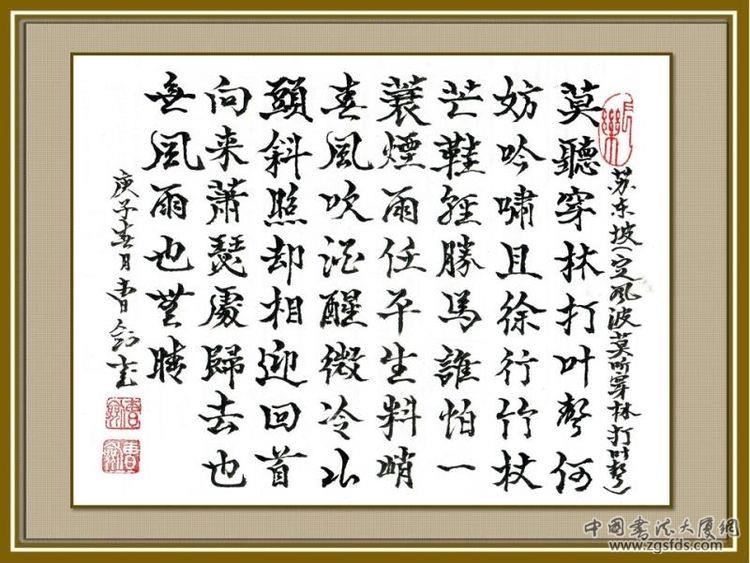 苏东坡(定风波莫听穿林打叶声)
莫聽穿林打叶聲何
妨吟嘯且徐行竹杖
芒鞋輕勝馬誰怕一
蓑煙雨任平生料峭
春風吹酒醒微冷山
頭斜照却相迎回首
向来蕭瑟處歸去也
無風雨也無晴
庚子春月曹剑书
中国书法大厦網
www.zgsfds.com